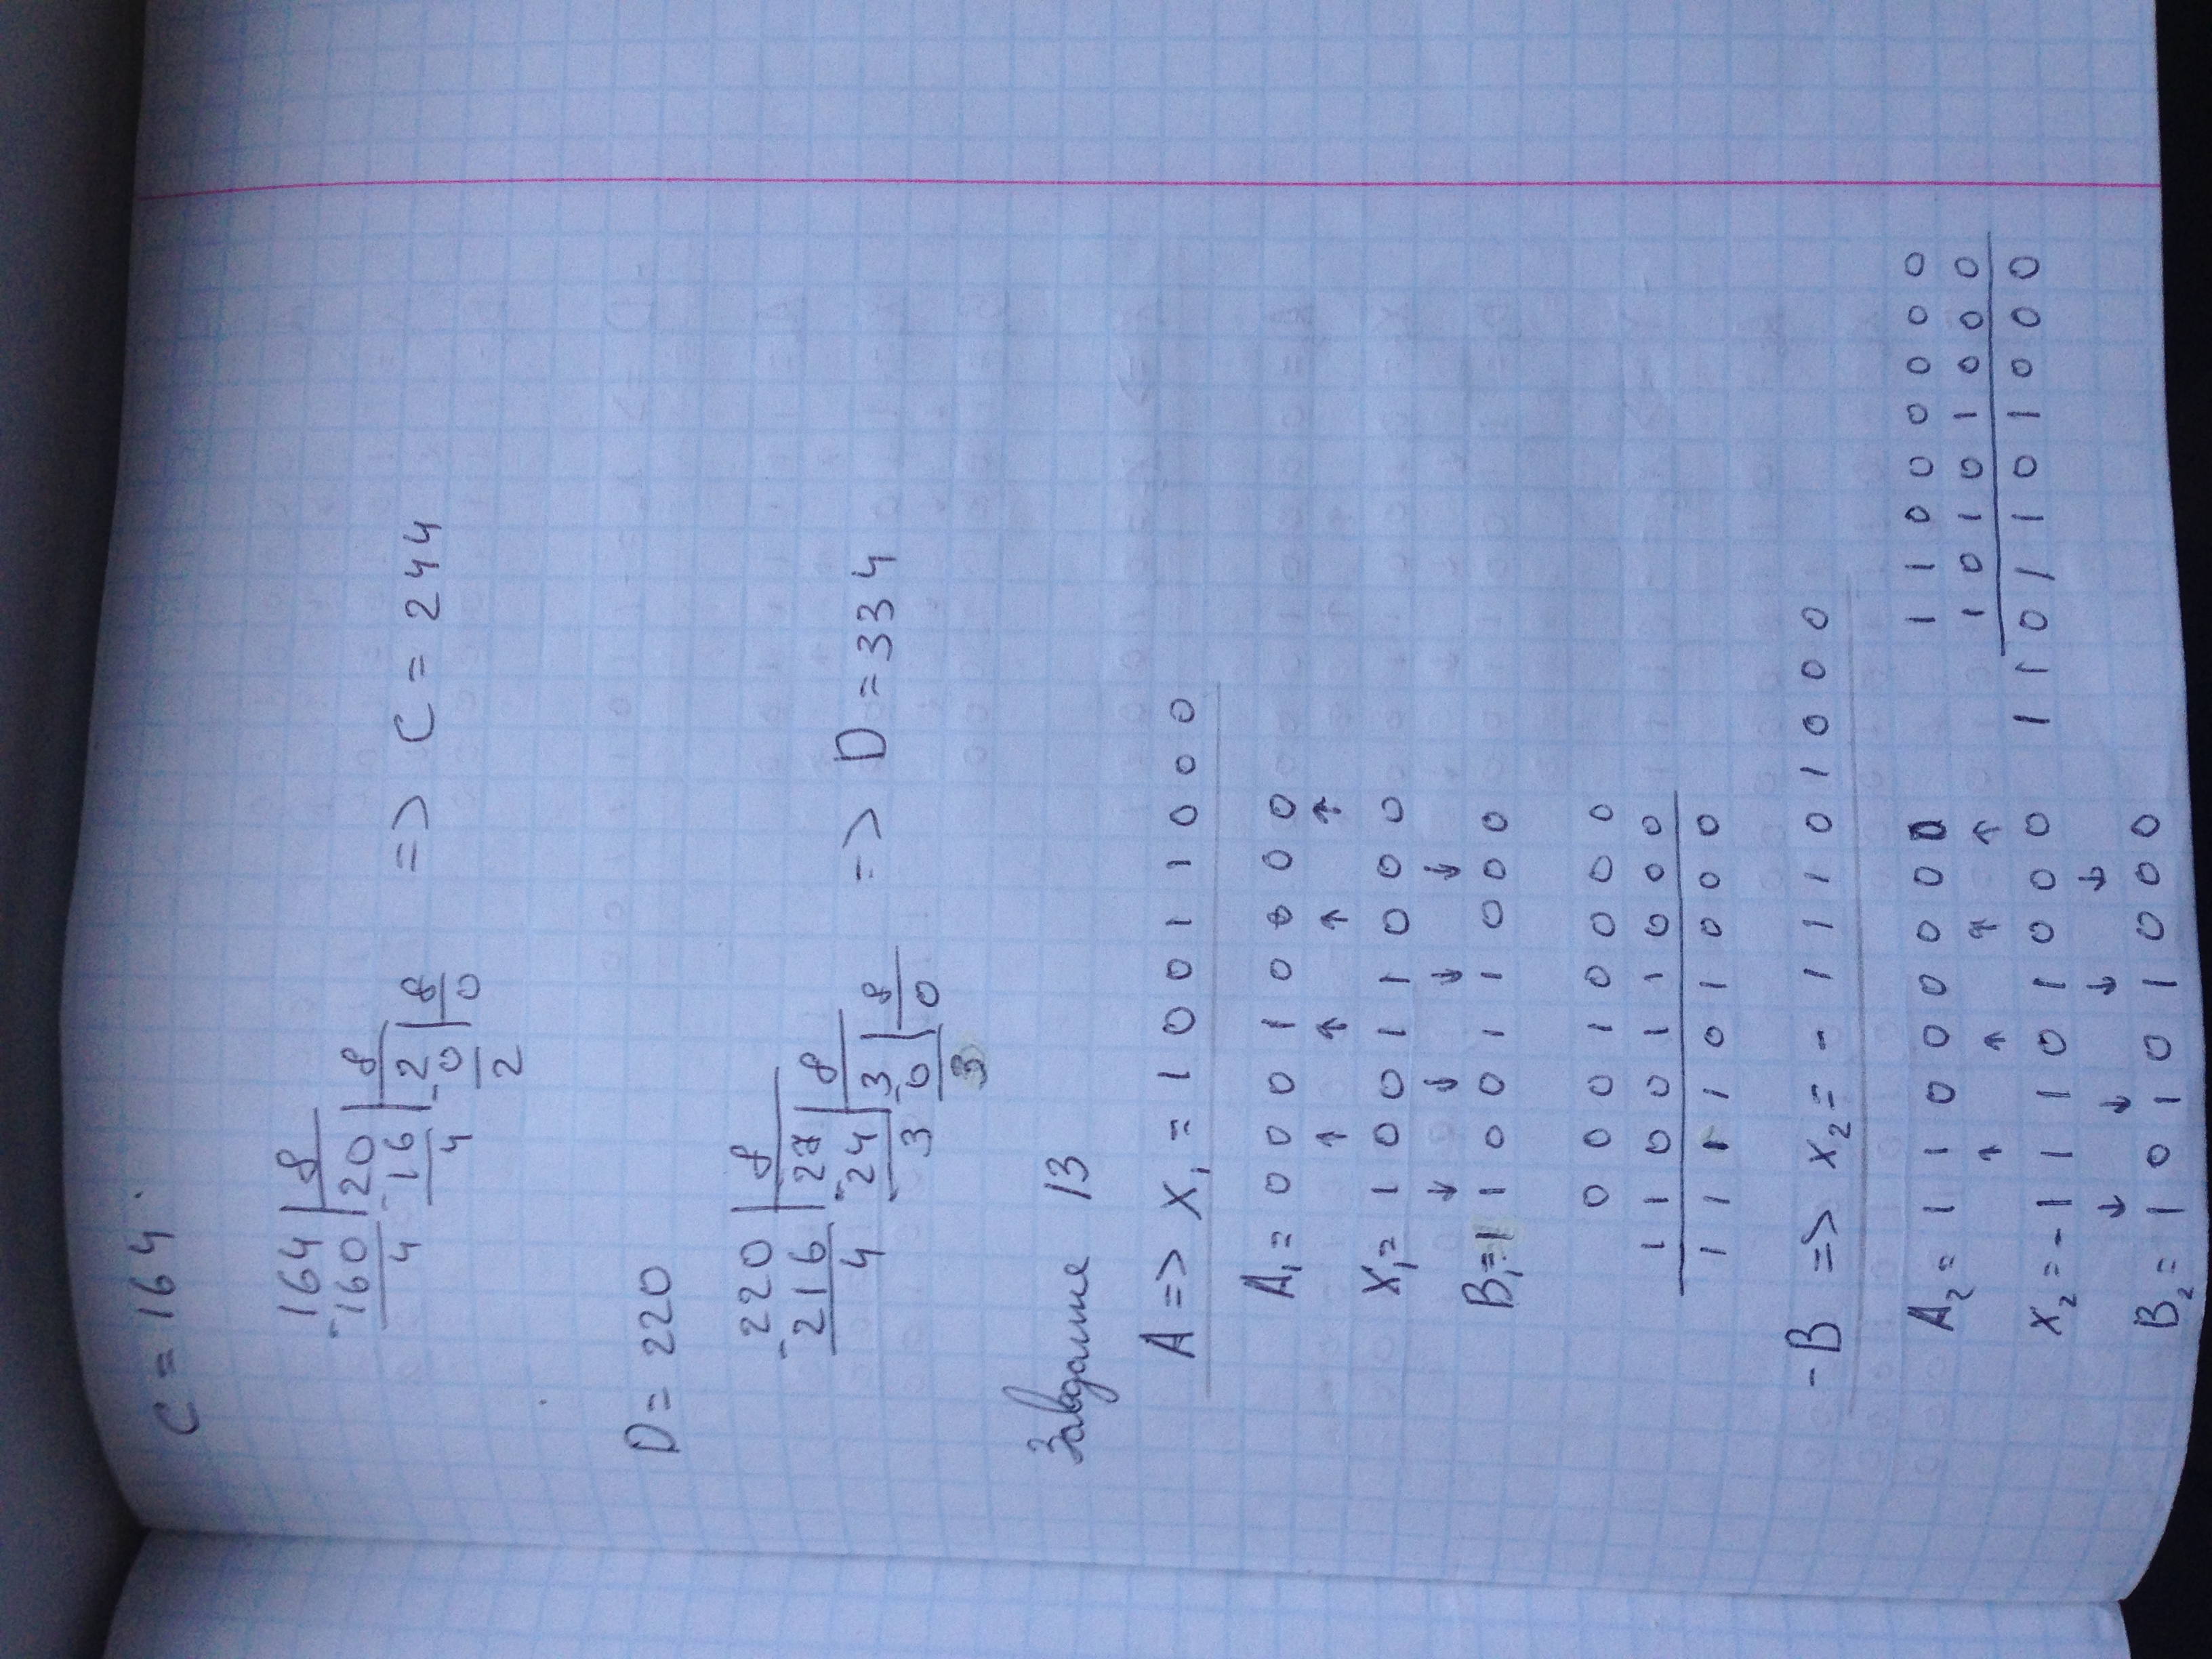 C = 164
164 | 8
-160 | 20 | 8
4 -16 | 2 | 8 => C = 244
4 -0 | 0
2
D = 220
-220 | 8
216 | 27 | 8
4 -24 | 3 | 8 => D = 334
3 -0 | 0
3
Завдание 13
A => X₁ = 1 0 0 1 1 0 0 0
A₁ = 0 0 0 1 0 0 0 0
↑ ↑ ↑ ↑
X₁ = 1 0 0 1 1 0 0 0
↓ ↓ ↓ ↓
B₁ = 1 1 0 0 1 1 0 0 0
0 0 0 1 0 0 0 0
1 1 0 0 1 1 0 0 0
1 1 1 1 0 1 0 0 0
-B => x₂ = - 1 1 1 0 1 0 0 0
A₂ = 1 1 0 0 0 0 0 0 1 1 0 0 0 0 0 0
↑ ↑ ↑ ↑ 1 0 1 0 1 0 0 0
X₂ = -1 1 1 0 1 0 0 0 1 1 0 1 1 0 1 0 0 0
↓ ↓ ↓ ↓
B₂ = 1 0 1 0 1 0 0 0